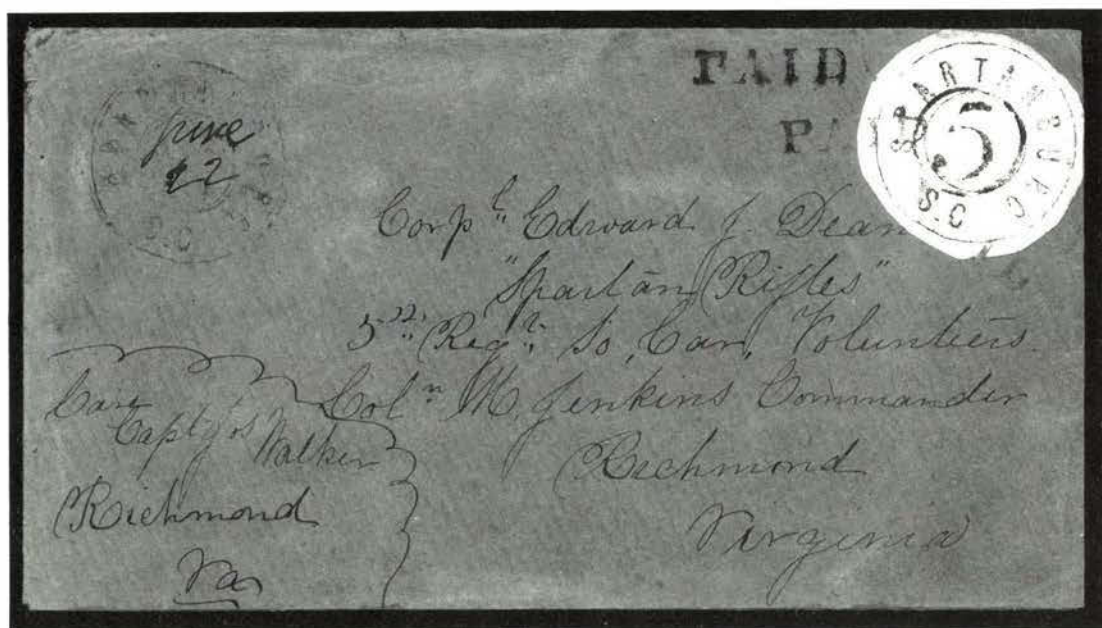 PAID
PA
SPARTANBURG S.C.
5
June
22
S.C.
Corpl. Edward J. Dean
"Spartan Rifles"
5th Regt. So, Car, Volunteers.
Coln M, Jenkins Commander
Richmond
Virginia
Care
Capt Jos Walker
Richmond
Va